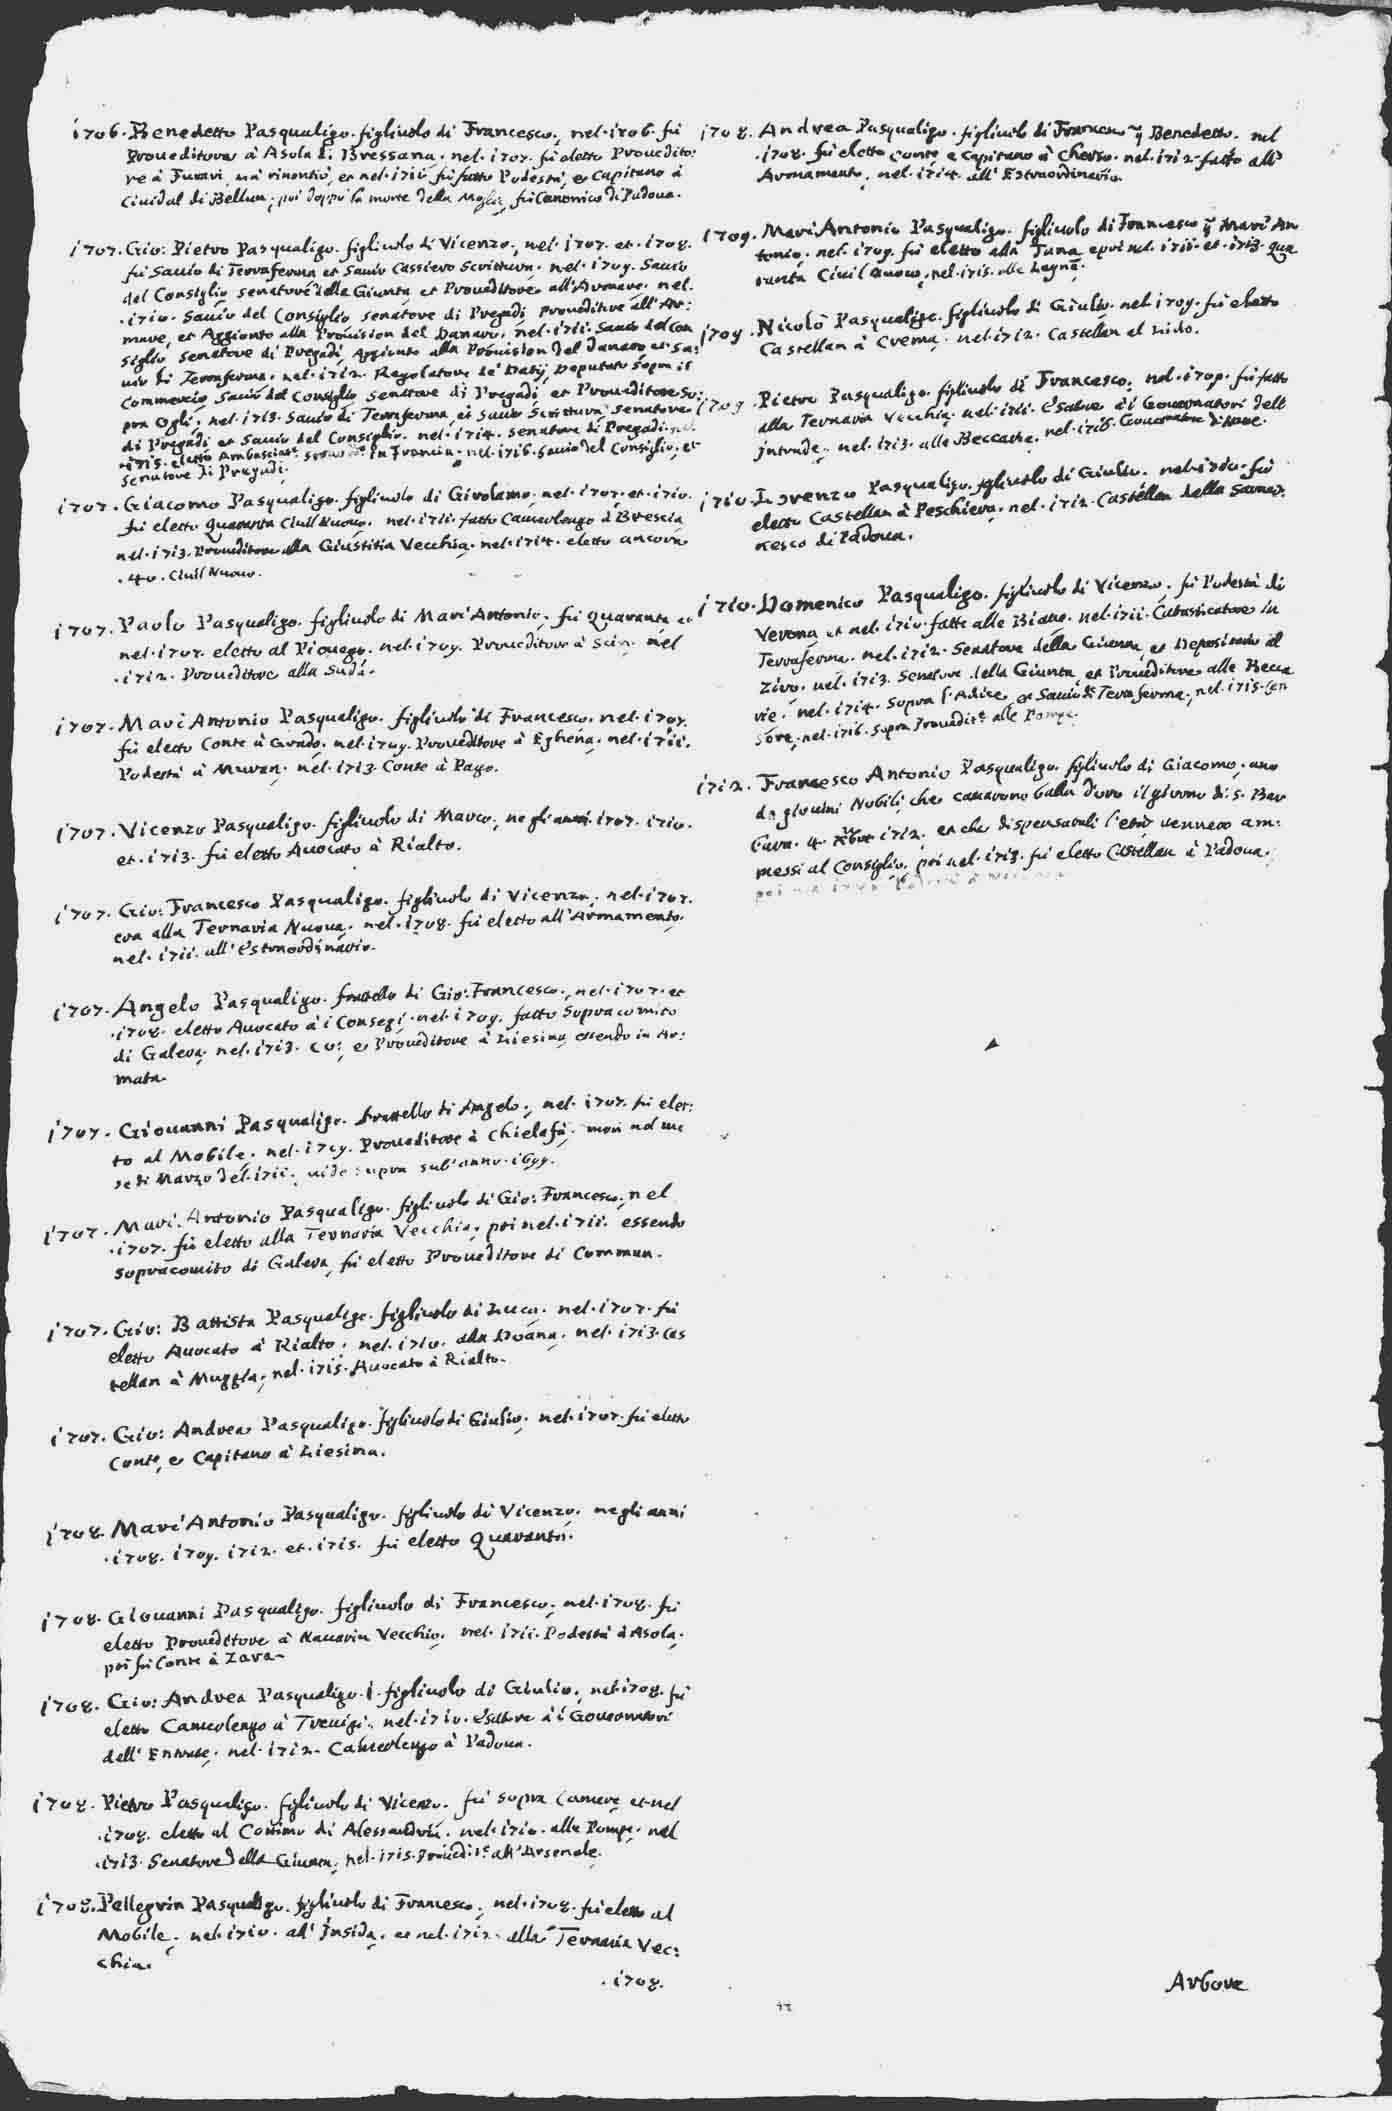 1706. Benedetto Pasqualigo. figliuolo di Francesco, nel. 1706. fù
Proueditore à Asola di Bressana. nel. 1707. fù eletto Proueditor
re à Furari, mà rinontiò, et nel. 1711 fù fatto Podestà, e Capitano à
Ciuidal di Bellun, poi doppò la morte della Moglie, fù Canonico di Padoua.
1707. Gio: Pietro Pasqualigo. figliuolo di Vicenzo, nel. 1707. et. 1708.
fù Sauio di Terraferma et Sauio Cassiero Scrittura. nel. 1709. Sauio
del Consiglio senatore della Giunta et Proueditore all'Armare. nel.
.1710. Sauio del Consiglio senatore di Pregadi Proueditore all'Ar:
mare, et Aggionto alla Prouision del Danaro. nel. 1711. Sauio del Con
siglio senatore di Pregadi, Aggionto alla Prouision del danaro et Sa:
uio di Terraferma. nel. 1712. Regolatore de' Datij, Deputato sopra il
Commercio Sauio del Consiglio senatore di Pregadi et Proueditore So:
pra Ogli, nel. 1713. Sauio di Terraferma, et Sauio Scrittura, senatore
di Pregadi et Sauio del Consiglio. nel. 1714. senatore di Pregadi. nel.
.1715. eletto Ambasciat.e in Francia. nel. 1716. Sauio del Consiglio, et
Senatore di Pregadi.
1707. Giacomo Pasqualigo. figliuolo di Girolamo, nel. 1707. et. 1710.
fù eletto Quaranta Ciuil Nuouo. nel. 1711. fatto Camerlengo à Brescia
nel. 1713. Proueditore alla Giustitia Vecchia. nel. 1714. eletto ancora
.40. Ciuil Nuouo.
1707. Paolo Pasqualigo. figliuolo di Mari'Antonio, fù Quaranta et
nel. 1707. eletto al Piouego. nel. 1709. Proueditore à Scin. nel
.1712. Proueditore alla Suda.
1707. Mari'Antonio Pasqualigo. figliuolo di Francesco. nel. 1707.
fù eletto Conte à Grado. nel. 1709. Proueditore à Eghena. nel. 1711.
Podestà à Muran. nel. 1713. Conte à Pago.
1707. Vicenzo Pasqualigo. figliuolo di Marco, negli anni. 1707. 1710.
et. 1713. fù eletto Auocato à Rialto.
1707. Gio: Francesco Pasqualigo. figliuolo di Vicenzo, nel. 1707.
era alla Ternaria Nuoua, nel. 1708. fù eletto all'Armamento.
nel. 1711. all'Estraordinario.
1707. Angelo Pasqualigo. frattello di Gio: Francesco, nel. 1707. et
.1708. eletto Auocato à i Consegi. nel. 1709. fatto Sopracomito
di Galera, nel. 1713. Co: e Proueditore à Liesina, essendo in Ar:
mata.
1707. Giouanni Pasqualigo. frattello di Angelo, nel. 1707. fù elet:
to al Mobile. nel. 1709. Proueditore à Chielafà. morì nel me
se di Marzo del. 1711. uide supra sub'anno. 1699.
1707. Mari'Antonio Pasqualigo. figliuolo di Gio: Francesco, nel
.1707. fù eletto alla Ternaria Vecchia, poi nel. 1711. essendo
sopracomito di Galera, fù eletto Proueditore di Commun.
1707. Gio: Battista Pasqualigo. figliuolo di Luca. nel. 1707. fù
eletto Auocato à Rialto. nel. 1710. alla Doana. nel. 1713. Cas
tellan à Muggia, nel. 1715. Auocato à Rialto.
1707. Gio: Andrea Pasqualigo. figliuolo di Giulio, nel. 1707. fù eletto
Conte, e Capitano à Liesina.
1708. Mari'Antonio Pasqualigo. figliuolo di Vicenzo. negli anni
.1708. 1709. 1712. et. 1715. fù eletto Quaranta.
1708. Giouanni Pasqualigo. figliuolo di Francesco, nel. 1708. fù
eletto Proueditore à Nauarin Vecchio. nel. 1711. Podestà à Asola,
poi fù Conte à Zara.
1708. Gio: Andrea Pasqualigo. i. figliuolo di Giulio, nel. 1708. fù
eletto Camerlengo à Treuigi, nel. 1710. Esatore à i Gouernatori
dell'Entrate, nel. 1712. Camerlengo à Padoua.
1708. Pietro Pasqualigo. figliuolo di Vicenzo. fù sopra Camere et nel
.1708. eletto al Cottimo di Alessandria. nel. 1710. alle Pompe. nel
.1713. Senatore della Giunta, nel. 1715. Proued.re all'Arsenale.
1708. Pellegrin Pasqualigo. figliuolo di Francesco, nel. 1708. fù eletto al
Mobile, nel. 1710. all'Insida, et nel. 1712. alla Ternaria Vec:
chia.
.1708.
1708. Andrea Pasqualigo. figliuolo di Francesco Benedetto. nel
.1708. fù eletto Conte, e Capitano à Cherso. nel. 1712. fatto all'
Armamento, nel. 1714. all'Estraordinario.
1709. Mari'Antonio Pasqualigo. figliuolo di Francesco Mari'An
tonio, nel. 1709. fù eletto alla Tana, e poi nel. 1711. et. 1713. Qua
ranta Ciuil Nuouo, nel. 1715. alle Legne.
1709. Nicolò Pasqualigo. figliuolo di Giulio. nel 1709. fù eletto
Castellan à Crema. nel. 1712. Castellan al Lido.
1709. Pietro Pasqualigo. figliuolo di Francesco, nel. 1709. fù fatto
alla Ternaria Vecchia. nel. 1711. Esatore à i Gouernatori dell
intrade, nel. 1713. alle Beccarie, nel. 1716. Gouernatore
1710. Lorenzo Pasqualigo. figliuolo di Giulio. nel. 1710. fù
eletto Castellan à Peschiera, nel. 1712. Castellan della Sarraci
nesca di Padoua.
1710. Domenico Pasqualigo. figliuolo di Vicenzo, fù Podestà di
Verona, et nel. 1710. fatto alle Biaue. nel. 1711. Catasticatore in
Terraferma. nel. 1712. Senatore della Giunta, et Depositario al
Ziro. nel. 1713. Senatore della Giunta, et Proueditore alle Becca
rie. nel. 1714. Sopra l'Adice, et Sauio di Terraferma, nel. 1715. Cen
sore, nel. 1716. sopra Prouedit.e alle Pompe.
1712. Francesco Antonio Pasqualigo. figliuolo di Giacomo, uno
de giouini Nobili, che cauarono balla d'oro il giorno di S. Bar
bara. 4. Xbre 1712, et che dispensatoli l'età uennero am:
messi al Consiglio, poi nel. 1713. fù eletto Castellan à Padoua.
Arbore